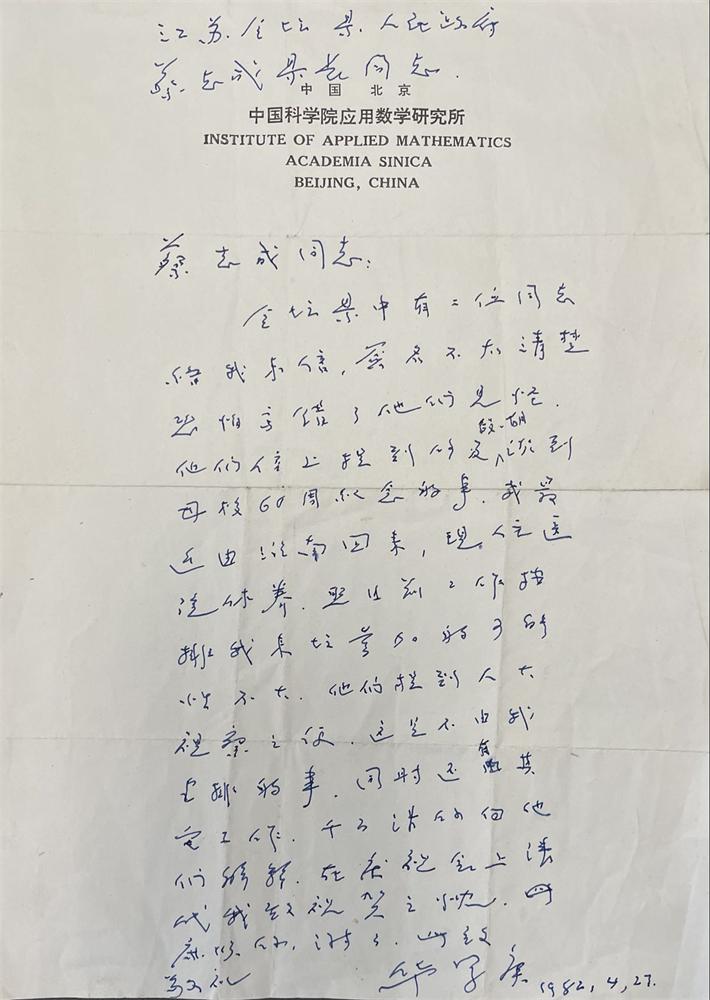 江苏金坛县人民政府
蔡志成县长同志.
中国 北京
中国科学院应用数学研究所
INSTITUTE OF APPLIED MATHEMATICS
ACADEMIA SINICA
BEIJING, CHINA
蔡志成同志:
金坛县中有二位同志
给我来信,签名不大清楚
恐怕写错了他们见怪.
他们信上提到的及 该到
母校60周纪念的事.我最
近由淮南回来,现在住医
院休养.照目前工作安
排我来坛参加的可能
性不大.他们提到人大
视察之便.这是不由我
安排的事.同时还有其
它工作.千万请你向他
们解释.在庆祝会上请
代我致祝贺之忱.
麻烦你,谢谢了.此致
敬礼 华罗庚 1982,4,27.